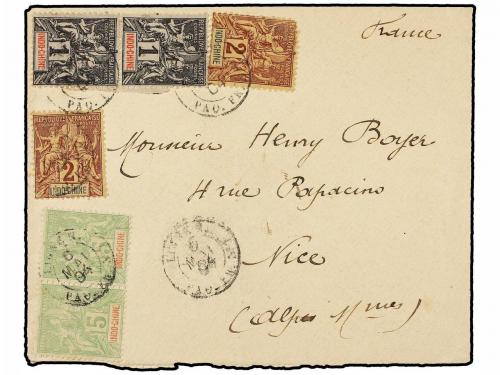 France
1 INDO-CHINE 1 INDO-CHINE 2 INDO-CHINE
PAQ. PAQ. F
REPUBLIQUE FRANCAISE
2
INDO-CHINE
Monsieur Henry Boyer
4 rue Papacino
Nice
(Alpes Mmes)
INDO-CHINE
6
MAI
04
PAQ.
6
MAI
04
5
INDO-CHINE